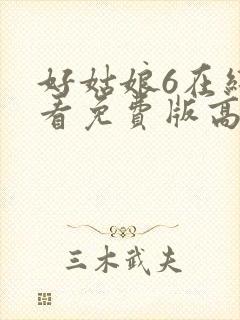 好姑娘6在线
看免费版高
三木武夫